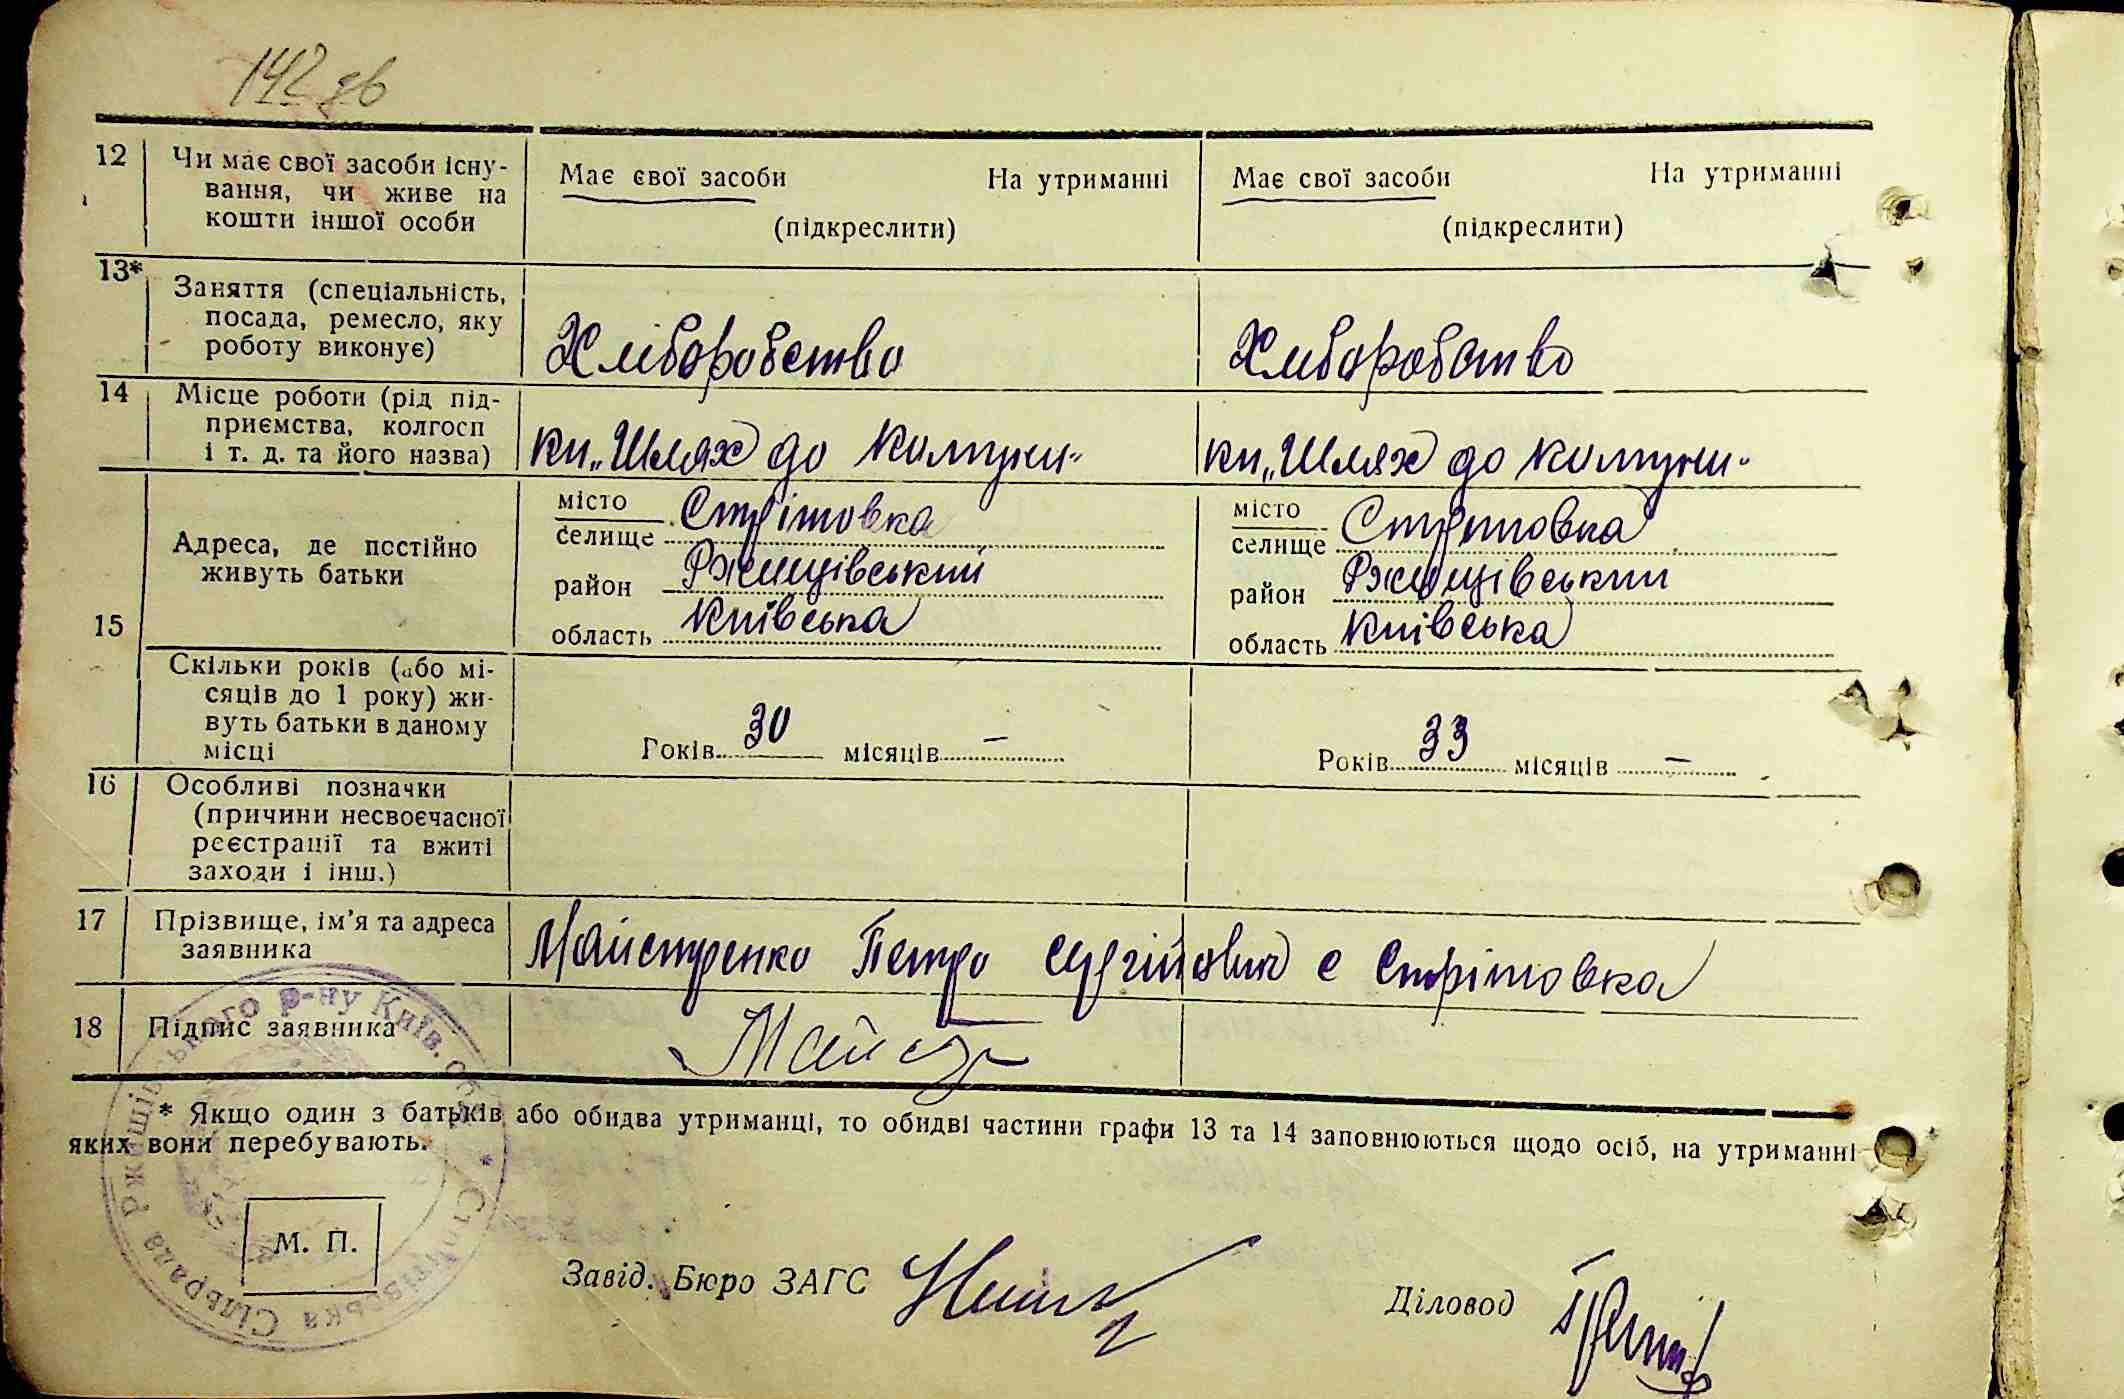 142 зв
12 Чи має свої засоби існу-
вання, чи живе на
кошти іншої особи
Має свої засоби На утриманні
(підкреслити)
Має свої засоби На утриманні
(підкреслити)
13* Заняття (спеціальність,
посада, ремесло, яку
роботу виконує)
Хліборобство
Хліборобство
14 Місце роботи (рід під-
приємства, колгосп
і т. д. та його назва)
кп „Шлях до Комуни"
кп „Шлях до Комуни"
15 Адреса, де постійно
живуть батьки
місто
селище Стрітовка
район Ржищівський
область Київська
місто
селище Стрітовка
район Ржищівський
область Київська
Скільки років (або мі-
сяців до 1 року) жи-
вуть батьки в даному
місці
Років 30 місяців –
Років 33 місяців –
16 Особливі позначки
(причини несвоєчасної
реєстрації та вжиті
заходи і інш.)
17 Прізвище, ім'я та адреса
заявника
Майстренко Петро Сергійович с Стрітовка
18 Підпис заявника
Майст
* Якщо один з батьків або обидва утриманці, то обидві частини графи 13 та 14 заповнюються щодо осіб, на утриманні
яких вони перебувають.
М. П.
Завід. Бюро ЗАГС
Діловод
Сільрада Ржищівського р-ну Київ. обл.